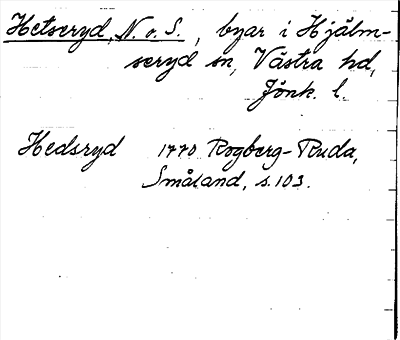 Hetseryd, N. o. S. , byar i Hjälm-
seryd sn, Västra hd,
Jönk. l.
Hedsryd 1770 Rogberg-Ruda,
Småland, s. 103.